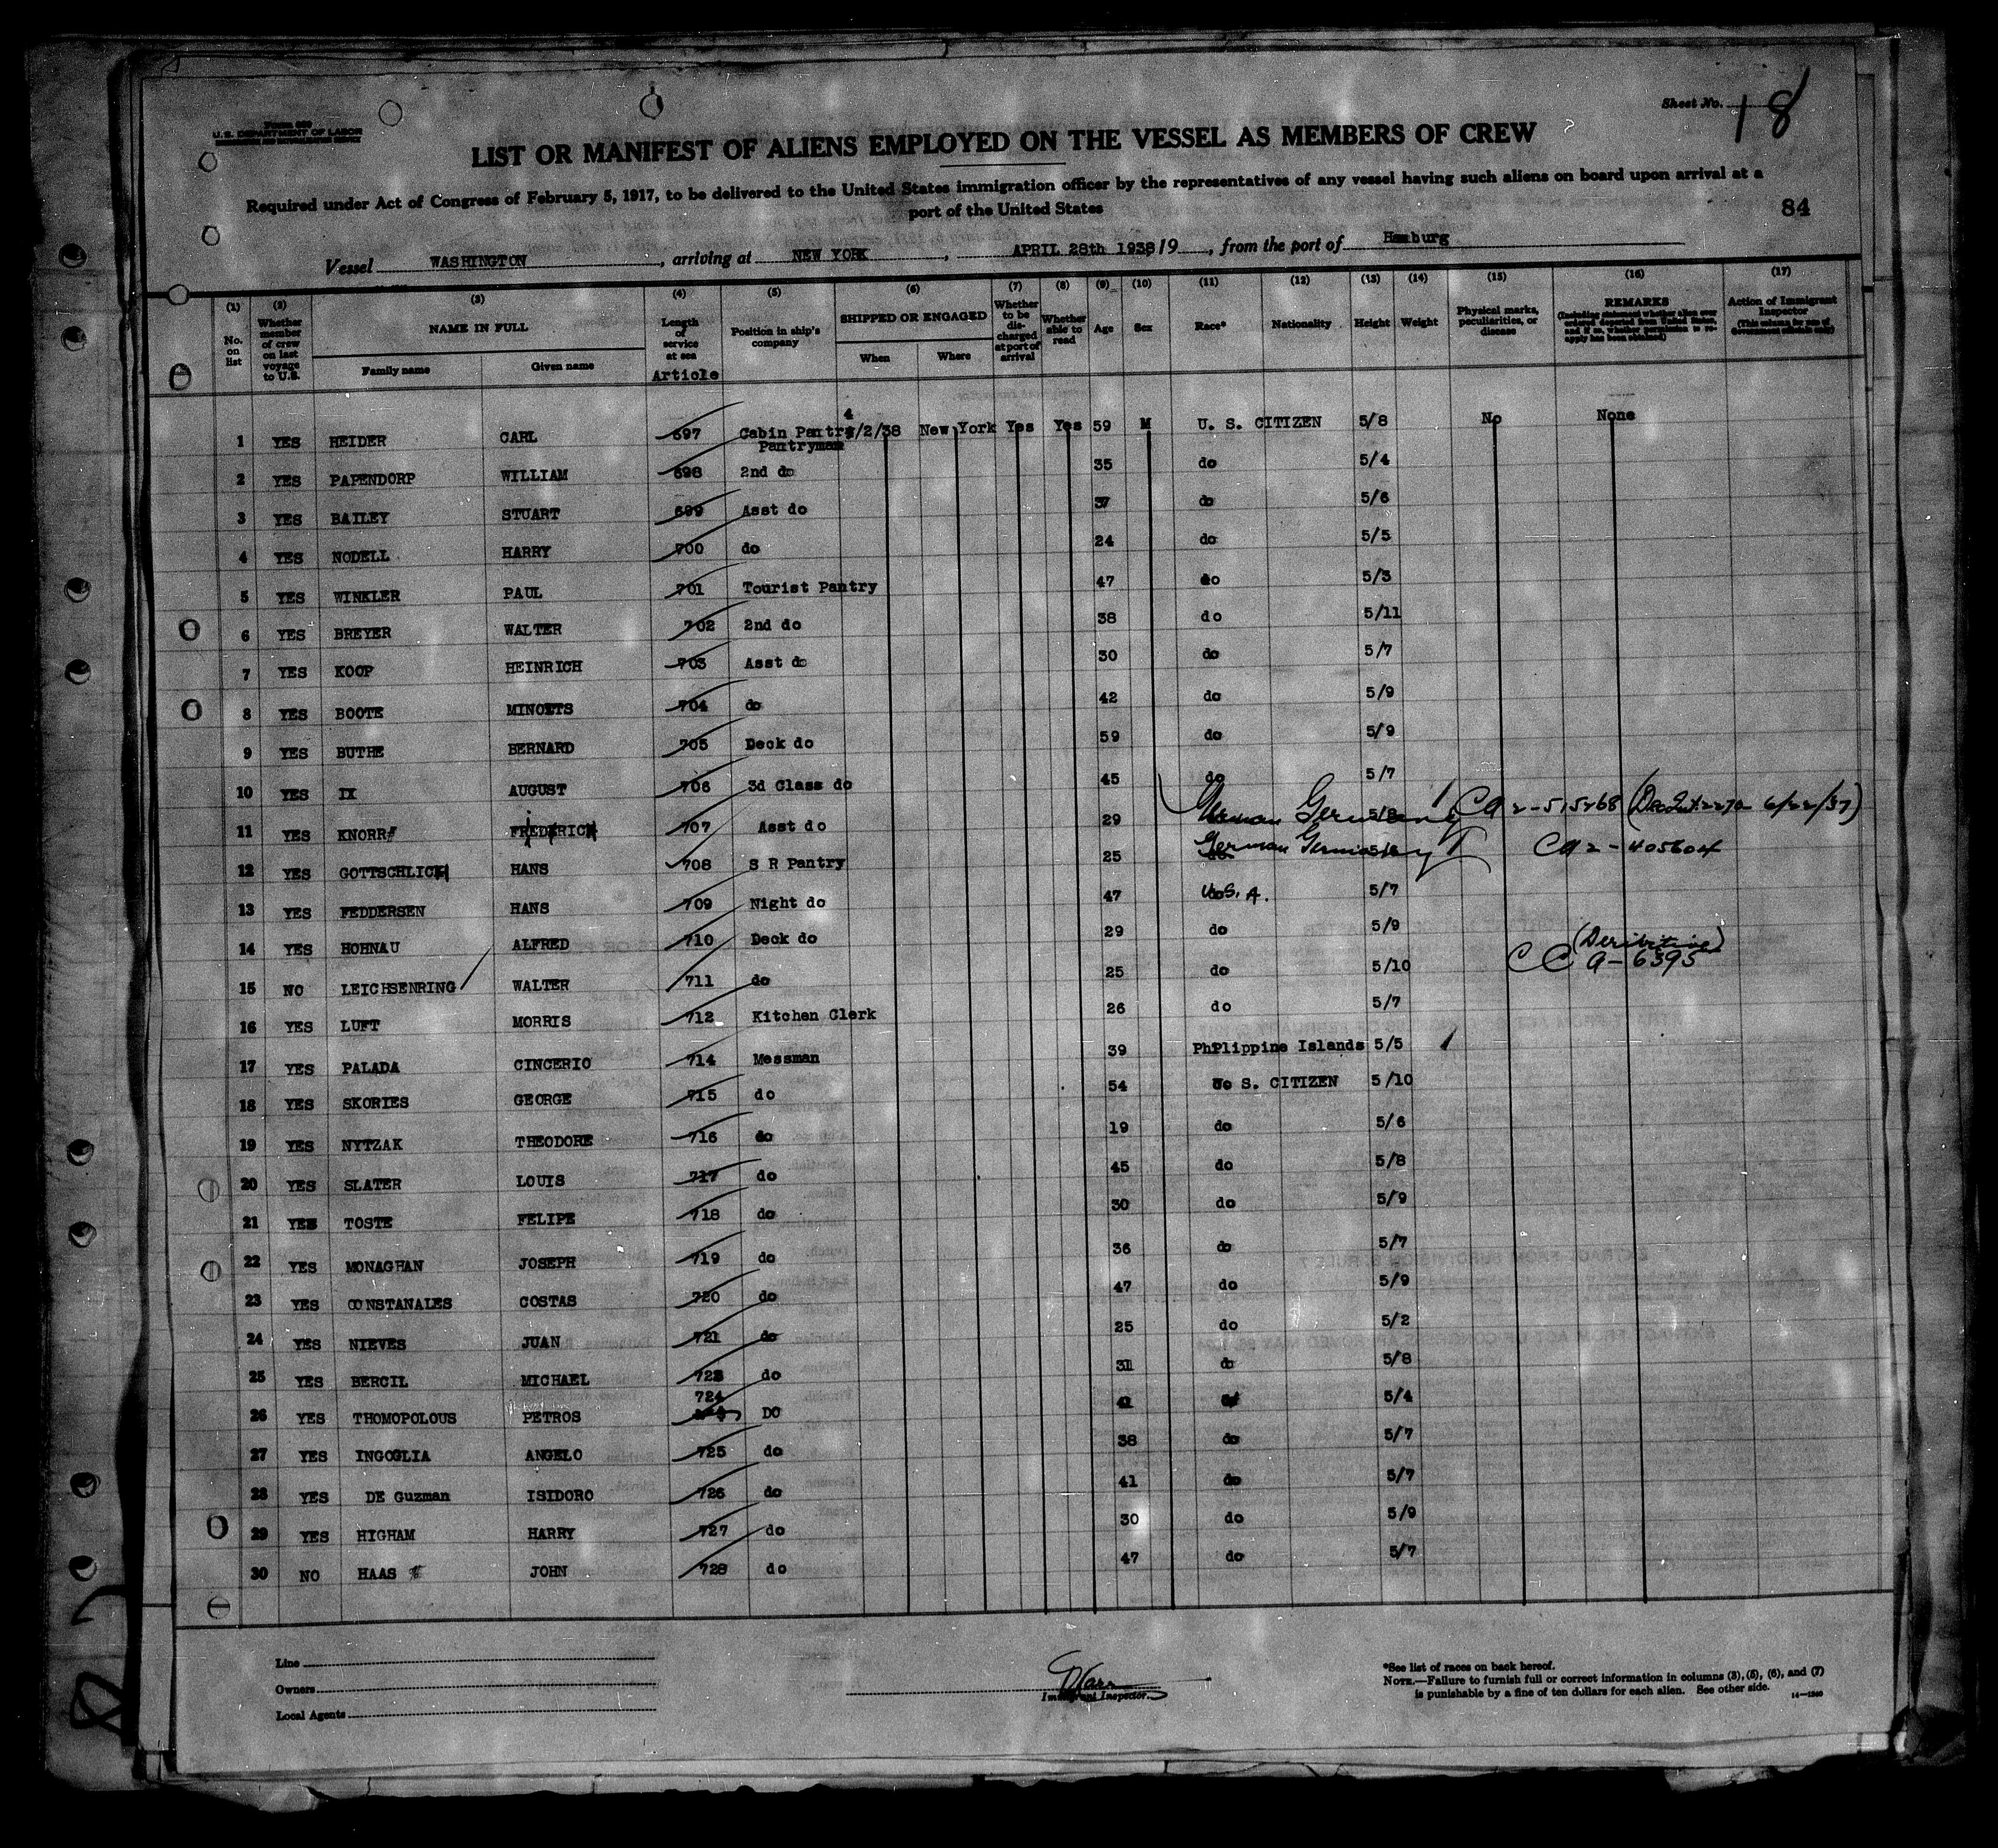 Sheet No. 18
U. S. DEPARTMENT OF LABOR
LIST OR MANIFEST OF ALIENS EMPLOYED ON THE VESSEL AS MEMBERS OF CREW
Required under Act of Congress of February 5, 1917, to be delivered to the United States immigration officer by the representatives of any vessel having such aliens on board upon arrival at a
port of the United States
84
Vessel WASHINGTON, arriving at NEW YORK, APRIL 28th 1938/9, from the port of Hamburg
(1) (2) (3) (4) (5) (6) (7) (8) (9) (10) (11) (12) (13) (14) (15) (16) (17)
No. on list Whether member of crew on last voyage to U.S. NAME IN FULL Family name Given name Length of service at sea Article Position in ship's company SHIPPED OR ENGAGED When Where Whether to be discharged at port of arrival Whether able to read Age Sex Race* Nationality Height Weight Physical marks, peculiarities, or disease REMARKS Action of Immigrant Inspector
1 YES HEIDER CARL 697 Cabin Pantry Pantryman 4/2/38 New York Yes Yes 59 M U. S. CITIZEN 5/8 No None
2 YES PAPENDORP WILLIAM 698 2nd do 35 do 5/4
3 YES BAILEY STUART 699 Asst do 37 do 5/6
4 YES NODELL HARRY 700 do 24 do 5/5
5 YES WINKLER PAUL 701 Tourist Pantry 47 do 5/3
6 YES BREYER WALTER 702 2nd do 38 do 5/11
7 YES KOOP HEINRICH 703 Asst do 30 do 5/7
8 YES BOOTE 704 do 42 do 5/9
9 YES BUTHE BERNARD 705 Deck do 59 do 5/9
10 YES IX AUGUST 706 3d Class do 45 do 5/7
11 YES KNORR 707 Asst do 29 German Germany 5/8 6/22/37)
12 YES GOTTSCHLICH HANS 708 S R Pantry 25 German Germany Ca 2-405604
13 YES FEDDERSEN HANS 709 Night do 47 U.S.A. 5/7
14 YES HOHNAU ALFRED 710 Deck do 29 do 5/9
15 NO LEICHSENRING WALTER 711 do 25 do 5/10 (Deribitive) CC a-6395
16 YES LUFT MORRIS 712 Kitchen Clerk 26 do 5/7
17 YES PALADA CINCERIO 714 Messman 39 Philippine Islands 5/5
18 YES SKORIES GEORGE 715 do 54 U. S. CITIZEN 5/10
19 YES NYTZAK THEODORE 716 do 19 do 5/6
20 YES SLATER LOUIS 717 do 45 do 5/8
21 YES TOSTE FELIPE 718 do 30 do 5/9
22 YES MONAGHAN JOSEPH 719 do 36 do 5/7
23 YES CONSTANALES COSTAS 720 do 47 do 5/9
24 YES NIEVES JUAN 721 do 25 do 5/2
25 YES BERCIL MICHAEL 723 do 31 do 5/8
26 YES THOMOPOLOUS PETROS 724 DO 5/4
27 YES INGOGLIA ANGELO 725 do 38 do 5/7
28 YES DE Guzman ISIDORO 726 do 41 do 5/7
29 YES HIGHAM HARRY 727 do 30 do 5/9
30 NO HAAS JOHN 728 do 47 do 5/7
Line
Owners
Local Agents
Immigrant Inspector.
*See list of races on back hereof.
NOTE.—Failure to furnish full or correct information in columns (3), (5), (6), and (7)
is punishable by a fine of ten dollars for each alien. See other side.